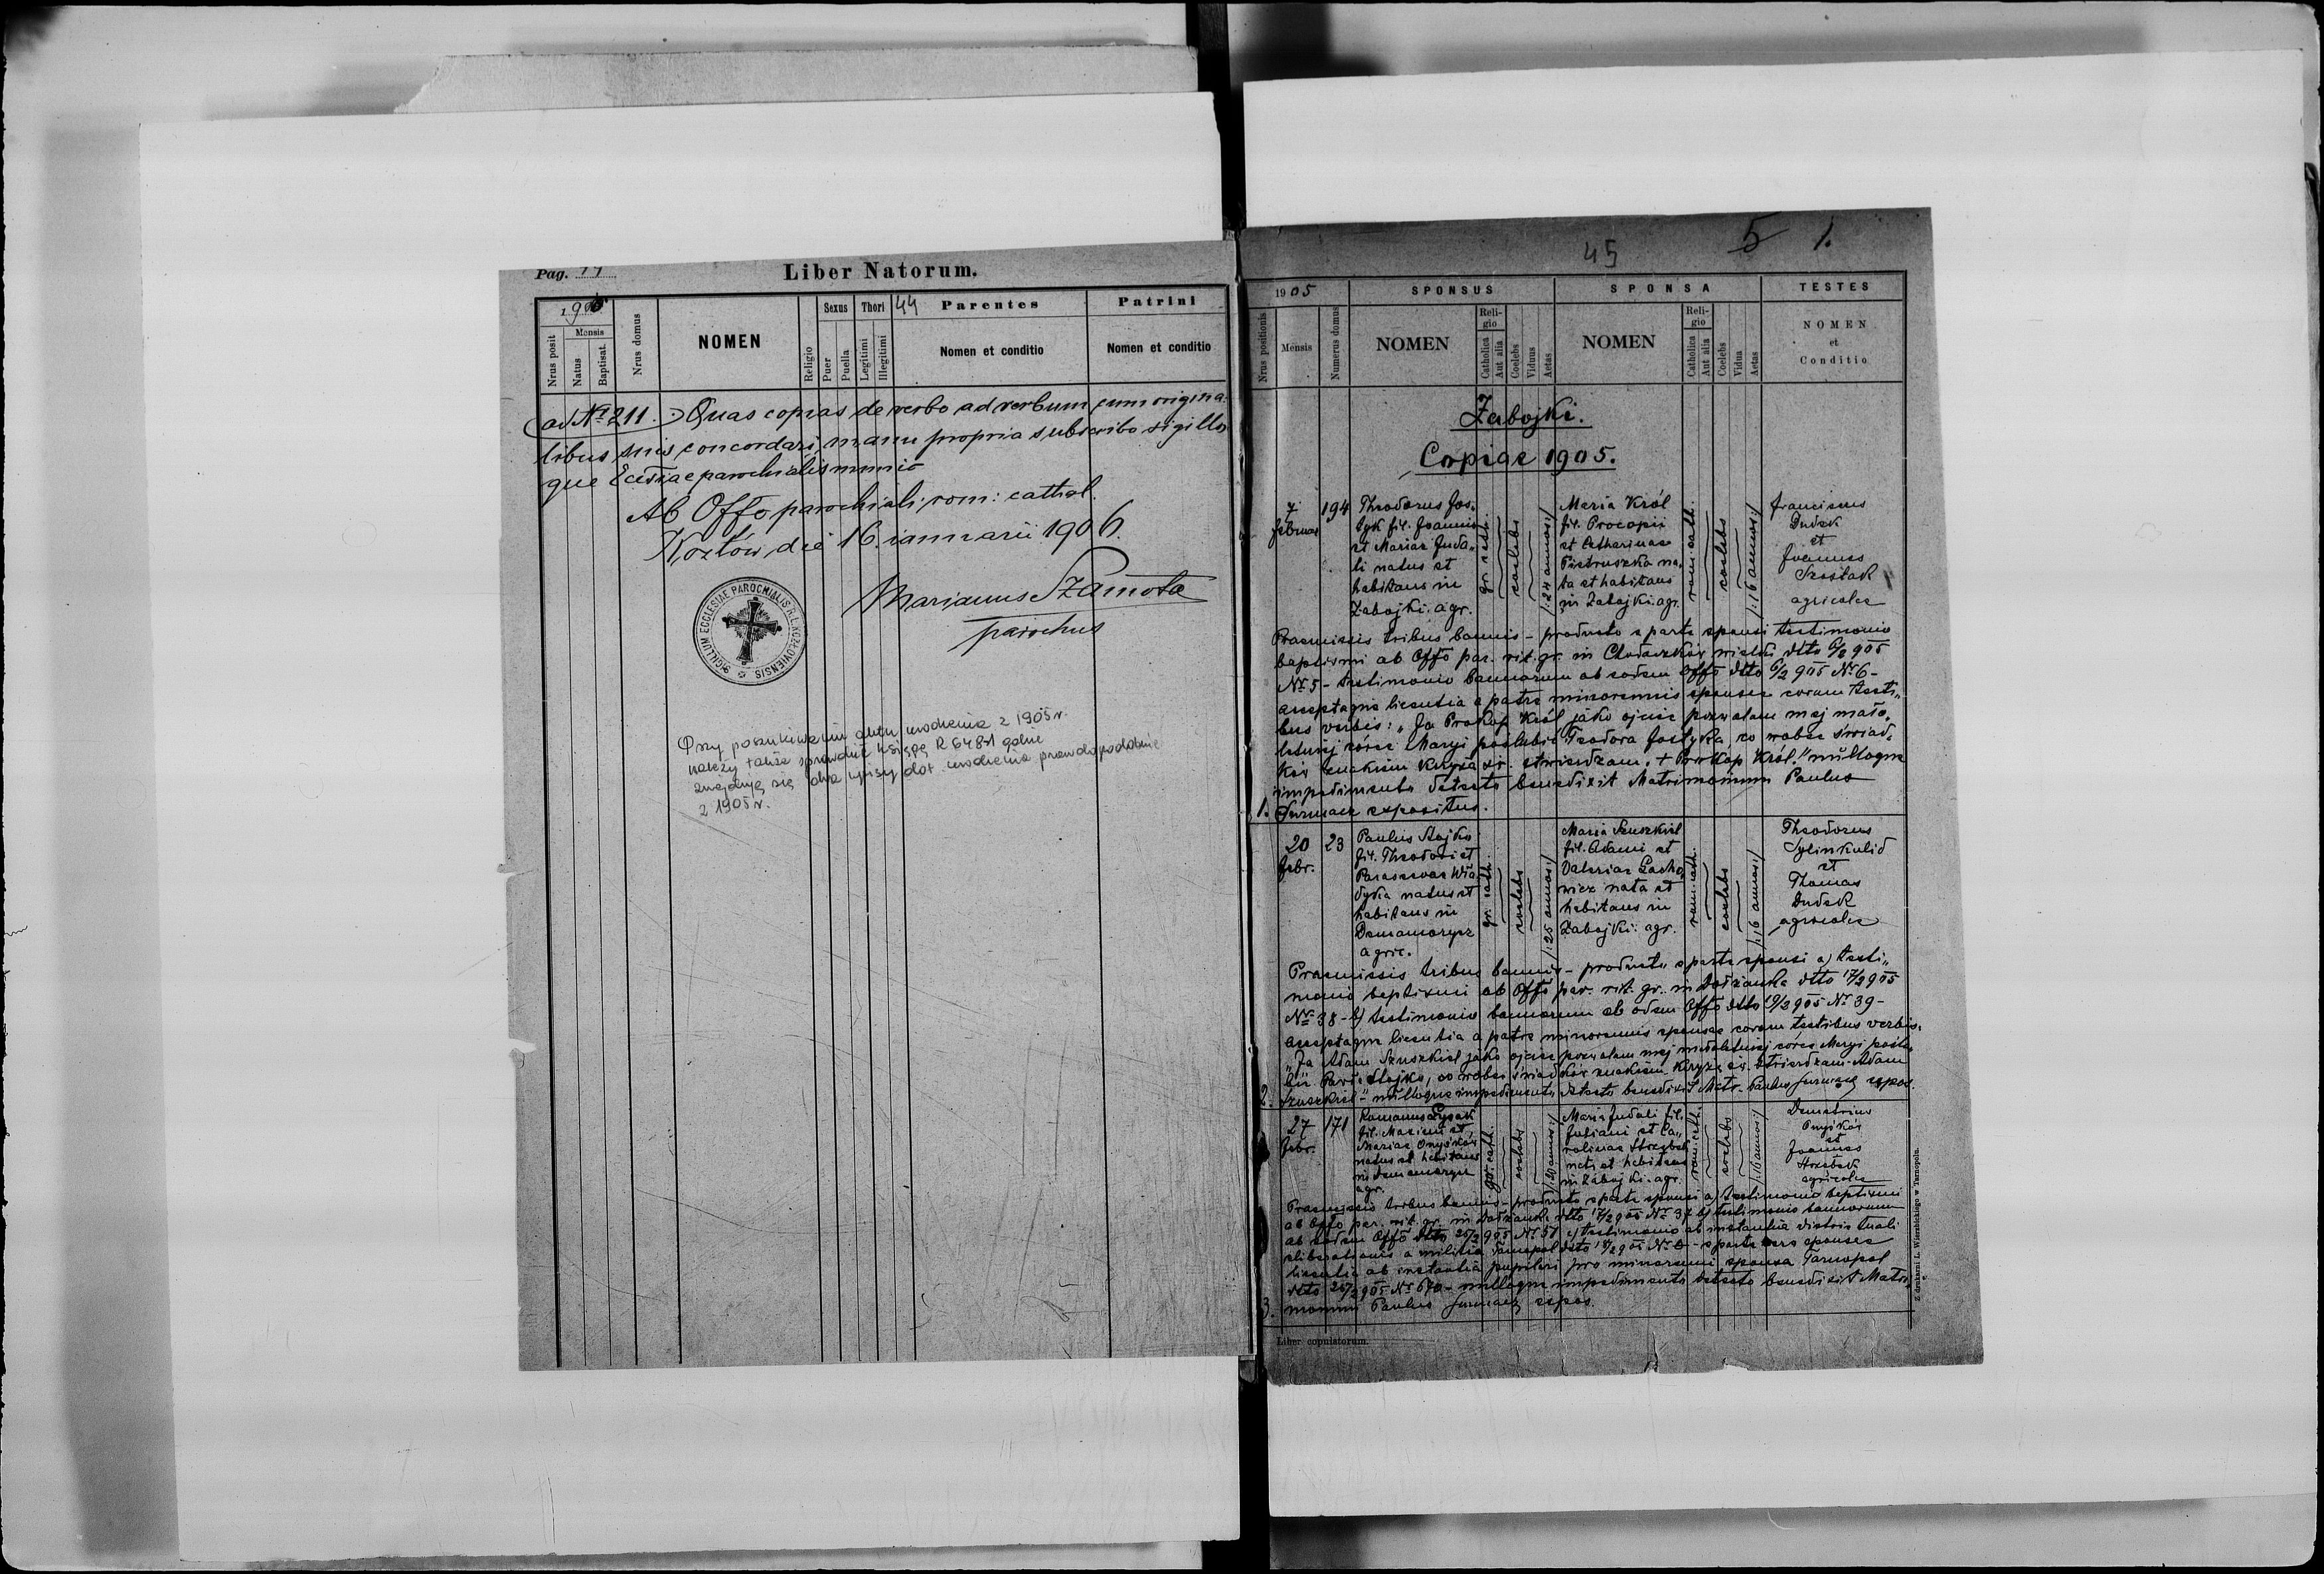 Pag.
Liber Natorum.
190
Nrus posit
Mensis
Natus
Baptisat.
Nrus domus
NOMEN
Religio
Sexus
Puer
Puella
Thori
Legitimi
Illegitimi
44
Parentes
Nomen et conditio
Patrini
Nomen et conditio
ad No 211. Quas copias de verbo ad verbum cum origina
libus suis concordari, manu propria subscribo sigillo
que Ecclesiae parochialis munio
Ab Offo parochiali rom: cathol.
Kozłów die 16. ianuarii 1906.
Marianus Szamota
parochus
SIGILLUM ECCLESIAE PAROCHIALIS R. L. KOZŁOVIENSIS
Przy poszukiwaniu aktu urodzenia z 1905 r.
należy także sprawdzić księgę R 6481 gdzie
znajdują się dwa wpisy dot. urodzenia prawdopodobnie
z 1905 r.
45
5 1.
1905
Nrus positionis
Mensis
Numerus domus
SPONSUS
NOMEN
Religio
Catholica
Aut alia
Coelebs
Viduus
Aetas
SPONSA
NOMEN
Religio
Catholica
Aut alia
Coelebs
Vidua
Aetas
TESTES
NOMEN
et
Conditio
Zabojki.
Copiae 1905.
7
Februar
194
Theodorus Jos
tyk fil. Joannis
et Mariae Juda
li natus et
habitans in
Zabojki. agr.
gr. cath.
coelebs
/: 24 annos :/
Maria Król
fil. Procopii
et Catharinae
Pietruszka na
ta et habitans
in Zabojki. agr.
rom. cath.
coelebs
/: 16 annos :/
Franciscus
Dudek
et
Joannes
Szostak
agricolae
Praemissis tribus bannis - producto a parte sponsi testimonio
baptismi ab Offo par. rit. gr. in dtto 6/2 905
No 5 - testimonio bannorum ab eodem Offo dtto 6/2 905 No 6 -
acceptaque licentia a patre minorennis sponsae coram testi
bus verbis: "Ja Prokop Król jako ojciec pozwalam mej mało
letniej córce Maryi poślubić Teodora Jostyka co wobec świad
ków znakiem krzyża św. stwierdzam. + Prokop Król." nulloque
impedimento detecto benedixit Matrimonium Paulus
1. Furmacz expositus.
20
Febr.
23
Paulus Stojko
fil. Theodori et
Parascevae Wła
dyka natus et
habitans in
Denamorycz
agric.
gr. cath.
coelebs
/: 25 annos :/
Maria Szuszkiel
fil. Adami et
Valeriae Lacho
wicz nata et
habitans in
Zabojki: agr.
rom. cath.
coelebs
/: 16 annos :/
Theodorus
et
Thomas
Dudek
agricolae
Praemissis tribus bannis - producto a parte sponsi a) testi
monio baptismi ab Offo par. rit. gr. in Dołżanka dtto 17/2 905
No 38 - b) testimonio bannorum ab eodem Offo dtto 19/2 905 No 39 -
acceptaque licentia a patre minorennis sponsae coram testibus verbis:
"Ja Adam Szuszkiel jako ojciec pozwalam mej małoletniej córce Maryi poślu
bić Pawła Stojko, co wobec świadków znakiem krzyża św. stwierdzam. Adam
2. Szuszkiel" - nulloque impedimento detecto benedixit Matr. Paulus Furmacz expos.
27
Febr.
171
Romanus Łysak
fil. Maximi et
Mariae Onyśków
natus et habitans
in Denamorycz
agr.
gr. cath.
coelebs
Maria Judali fil.
Juliani et Ca
rolinae
nata et habitans
in Zabojki. agr.
rom. cath.
coelebs
/: 16 annos :/
Demetrius
Onyśków
et
Joannes
agricolae
Praemissis tribus bannis - producto a parte sponsi a) testimonio baptismi
ab Offo par. rit. gr. in Dołżanka dtto 17/2 905 No 37 b) testimonio bannorum
ab eodem Offo dtto 26/2 905 No 51 c) testimonio ab instantia districtuali
liberationis a militia Tarnopol dtto 905 - a parte vero sponsae
licentia ab instantia pupilari pro minorenni sponsa Tarnopol
dtto 905 No 670 - nulloque impedimento detecto benedixit Matri
3. monium Paulus Furmacz expos.
Liber copulatorum.
Z drukarni L. Wierzbickiego w Tarnopolu.